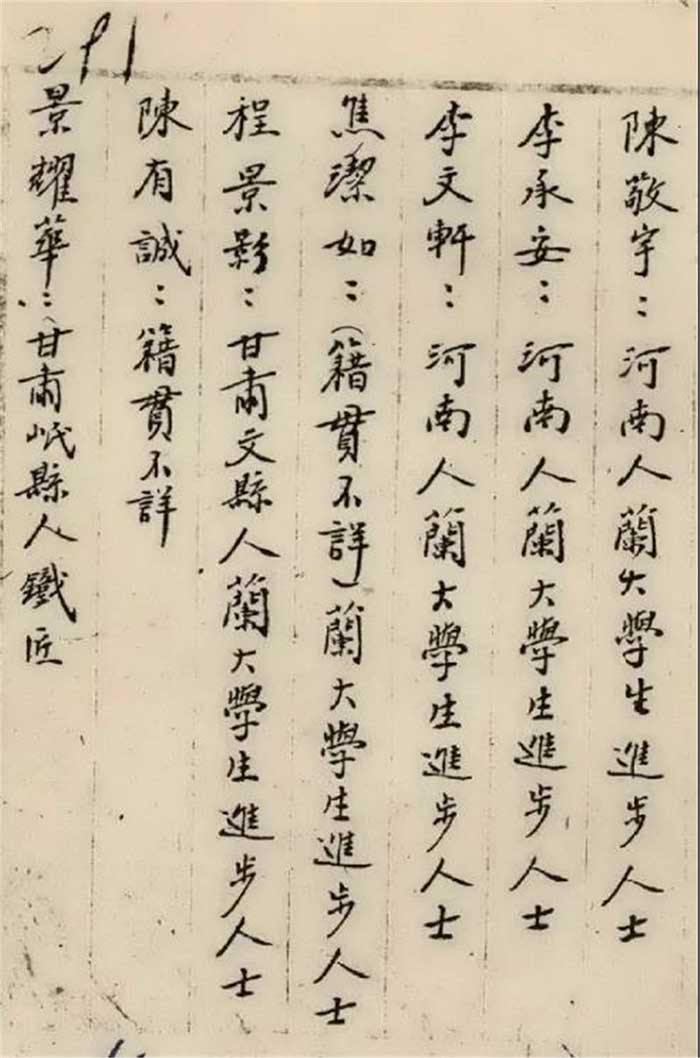 陳敬宇：河南人蘭大學生進步人士
李承安：河南人蘭大學生進步人士
李文軒：河南人蘭大學生進步人士
焦潔如：（籍貫不詳）蘭大學生進步人士
程景影：甘肅文縣人蘭大學生進步人士
陳有誠：籍貫不詳
景耀華：甘肅岷縣人鐵匠